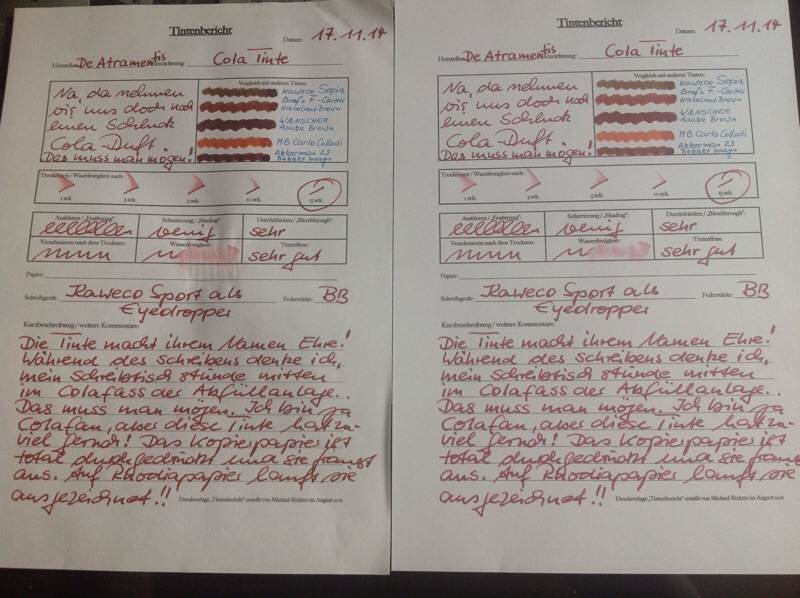 Tintenbericht
Datum: 17.11.14
Hersteller: De Atramentis Bezeichnung: Cola Tinte
Na, da nehmen
wir uns doch noch
einen Schluck
Cola-Duft.
Das muss man mögen!
Vergleich mit anderen Tinten:
Kaweco Sepia
Graf v. F.-Castell
Hazelnut Brown
WANSCHER
Asube Brown
MB Carlo Collodi
Akkerman 23
Trockenzeit / Wischfestigkeit nach:
1 sek. 3 sek. 5 sek. 10 sek. 15 sek.
Ausbluten / „Feathering": Schattierung / „Shading": Durchdrücken / „Bleedthrough":
wenig sehr
Verschmieren nach dem Trocknen: Wasserfestigkeit: Tintenfluss:
sehr gut
Papier:
Schreibgerät: Kaweco Sport als Federstärke: BB
Eyedropper
Kurzbeschreibung / weitere Kommentare:
Die Tinte macht ihrem Namen Ehre!
Während des Schreibens denke ich,
mein Schreibtisch stünde mitten
im Colafass der Abfüllanlage..
Das muss man mögen. Ich bin ja
Colafan, aber diese Tinte hat zu-
viel Geruch! Das Kopierpapier ist
total durchgedrückt und sie franst
aus. Auf Rhodiapapier läuft sie
ausgezeichnet!!
Druckvorlage „Tintenbericht" erstellt von Michael Richter im August 2011
Tintenbericht
Datum: 17.11.14
Hersteller: De Atramentis Bezeichnung: Cola Tinte
Na, da nehmen
wir uns doch noch
einen Schluck
Cola-Duft.
Das muss man mögen!
Vergleich mit anderen Tinten:
Kaweco Sepia
Graf v. F.-Castell
Hazelnut Brown
WANSCHER
Asube Brown
MB Carlo Collodi
Akkerman 23
Trockenzeit / Wischfestigkeit nach:
1 sek. 3 sek. 5 sek. 10 sek. 15 sek.
Ausbluten / „Feathering": Schattierung / „Shading": Durchdrücken / „Bleedthrough":
wenig sehr
Verschmieren nach dem Trocknen: Wasserfestigkeit: Tintenfluss:
sehr gut
Papier:
Schreibgerät: Kaweco Sport als Federstärke: BB
Eyedropper
Kurzbeschreibung / weitere Kommentare:
Die Tinte macht ihrem Namen Ehre!
Während des Schreibens denke ich,
mein Schreibtisch stünde mitten
im Colafass der Abfüllanlage..
Das muss man mögen. Ich bin ja
Colafan, aber diese Tinte hat zu-
viel Geruch! Das Kopierpapier ist
total durchgedrückt und sie franst
aus. Auf Rhodiapapier läuft sie
ausgezeichnet!!
Druckvorlage „Tintenbericht" erstellt von Michael Richter im August 2011